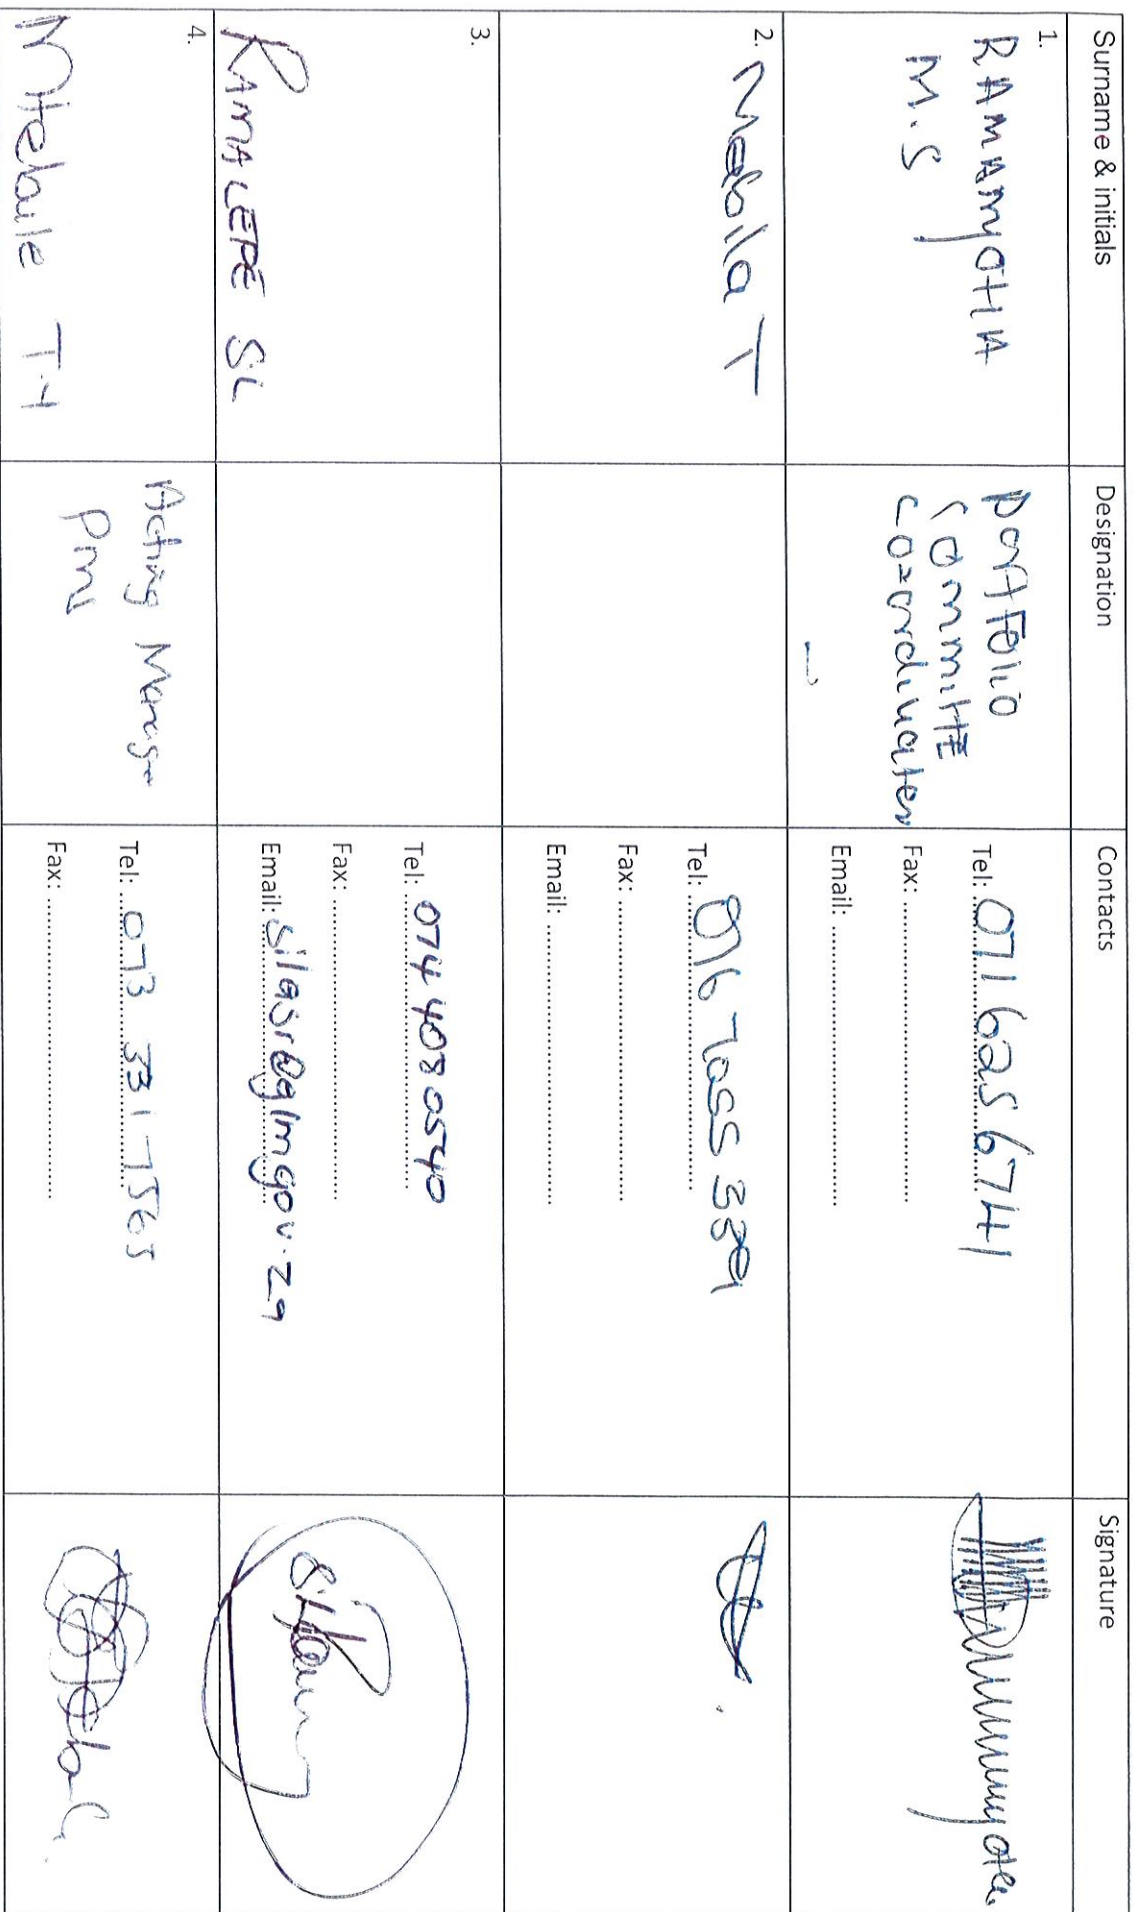 Surname & initials Designation Contacts Signature
1.
RAMAMYOTHA
M.S
PORTFOLIO
COMMITTE
CO-ordinater
Tel: 071 625 6741
Fax:
Email:
2.
Mabila T
Tel: 076 7055 389
Fax:
Email:
3.
RAMALEPE SL
Tel: 074 408 0540
Fax:
Email: silasr@glmgov.za
4.
Mtebule T.H
Acting Manager
PMU
Tel: 073 331 7565
Fax: